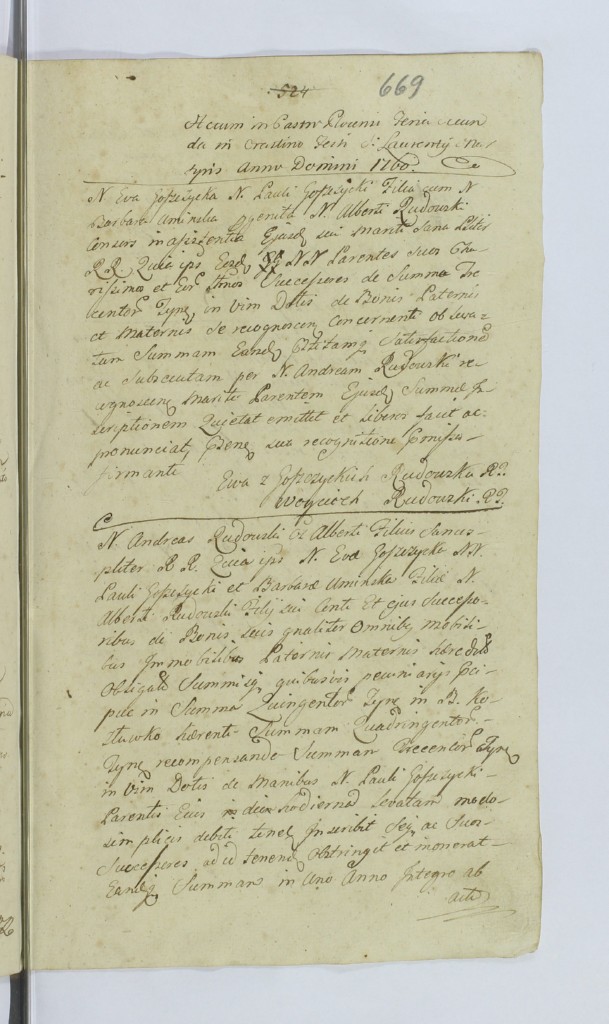 524 669
Actum in Castro Plocensi Feria secun
da in Crastino Festi S. Laurentij Mar
tyris Anno Domini 1760.
N. Eva Goszczycka N. Pauli Goszczycki Filia cum N
Barbara Aminska genita N. Alberti Rudowski
Consors in assistentia Ejusd sui Mariti Sana Pliter
R. R. Quia ips Eosd NN Parentes suos Cha-
rissimos et Eor Successores de Summa Tre
centor Tynf in Vim Dotis de Bonis Paternis
et Maternis se recognoscen Concernenti ob leva-
tam Summam Eand Satisfactione
ac Subsecutam per N. Andream Rudowski re
cognoscen Mariti Parentem Ejusd Summae In
scriptionem Quietat emittet et liberos facit ac
pronunciat, sua recognitione
firmante
Ewa z Goszczyckich Rudowska
Woyciech Rudowski
N. Andreas Rudowski Alberti Filius Sanus
pliter R. R. Quia ips N. Eva Goszczycka NN.
Pauli Goszczycki et Barbarae Aminska Filiae N.
Alberti Rudowski Filij sui Conti Et ejus Successo-
ribus de Bonis suis gnaliter Omnibq mobili-
bus Immobilibus Paternis Maternis
Obligat Summisq quibusvis pecuniarijs
in Summa Quingentor Tynf in B. Ko-
zlowko haerenti Summam Quadringentor
Tynf recompensando Summam Trecentor Tynf
in Vim Dotis de Manibus N. Pauli Goszczycki
Parentis Eius in die hodierna levatam modo
simplicis debiti tenet Inscribit Seq ac Suos
Successores ad id tenend Obstringit et inonerat
Eandq Summam in Ano Anno Integro ab
actu